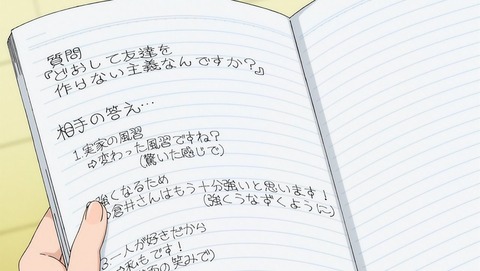 質問
『どおして友達を
作らない主義なんですか？』
相手の答え…
1実家の風習
⇨変わった風習ですね？
(驚いた感じで)
強くなるため
倉井さんはもう十分強いと思います！
(強くうなずくように)
3一人が好きだから
私もです！
の笑みで)